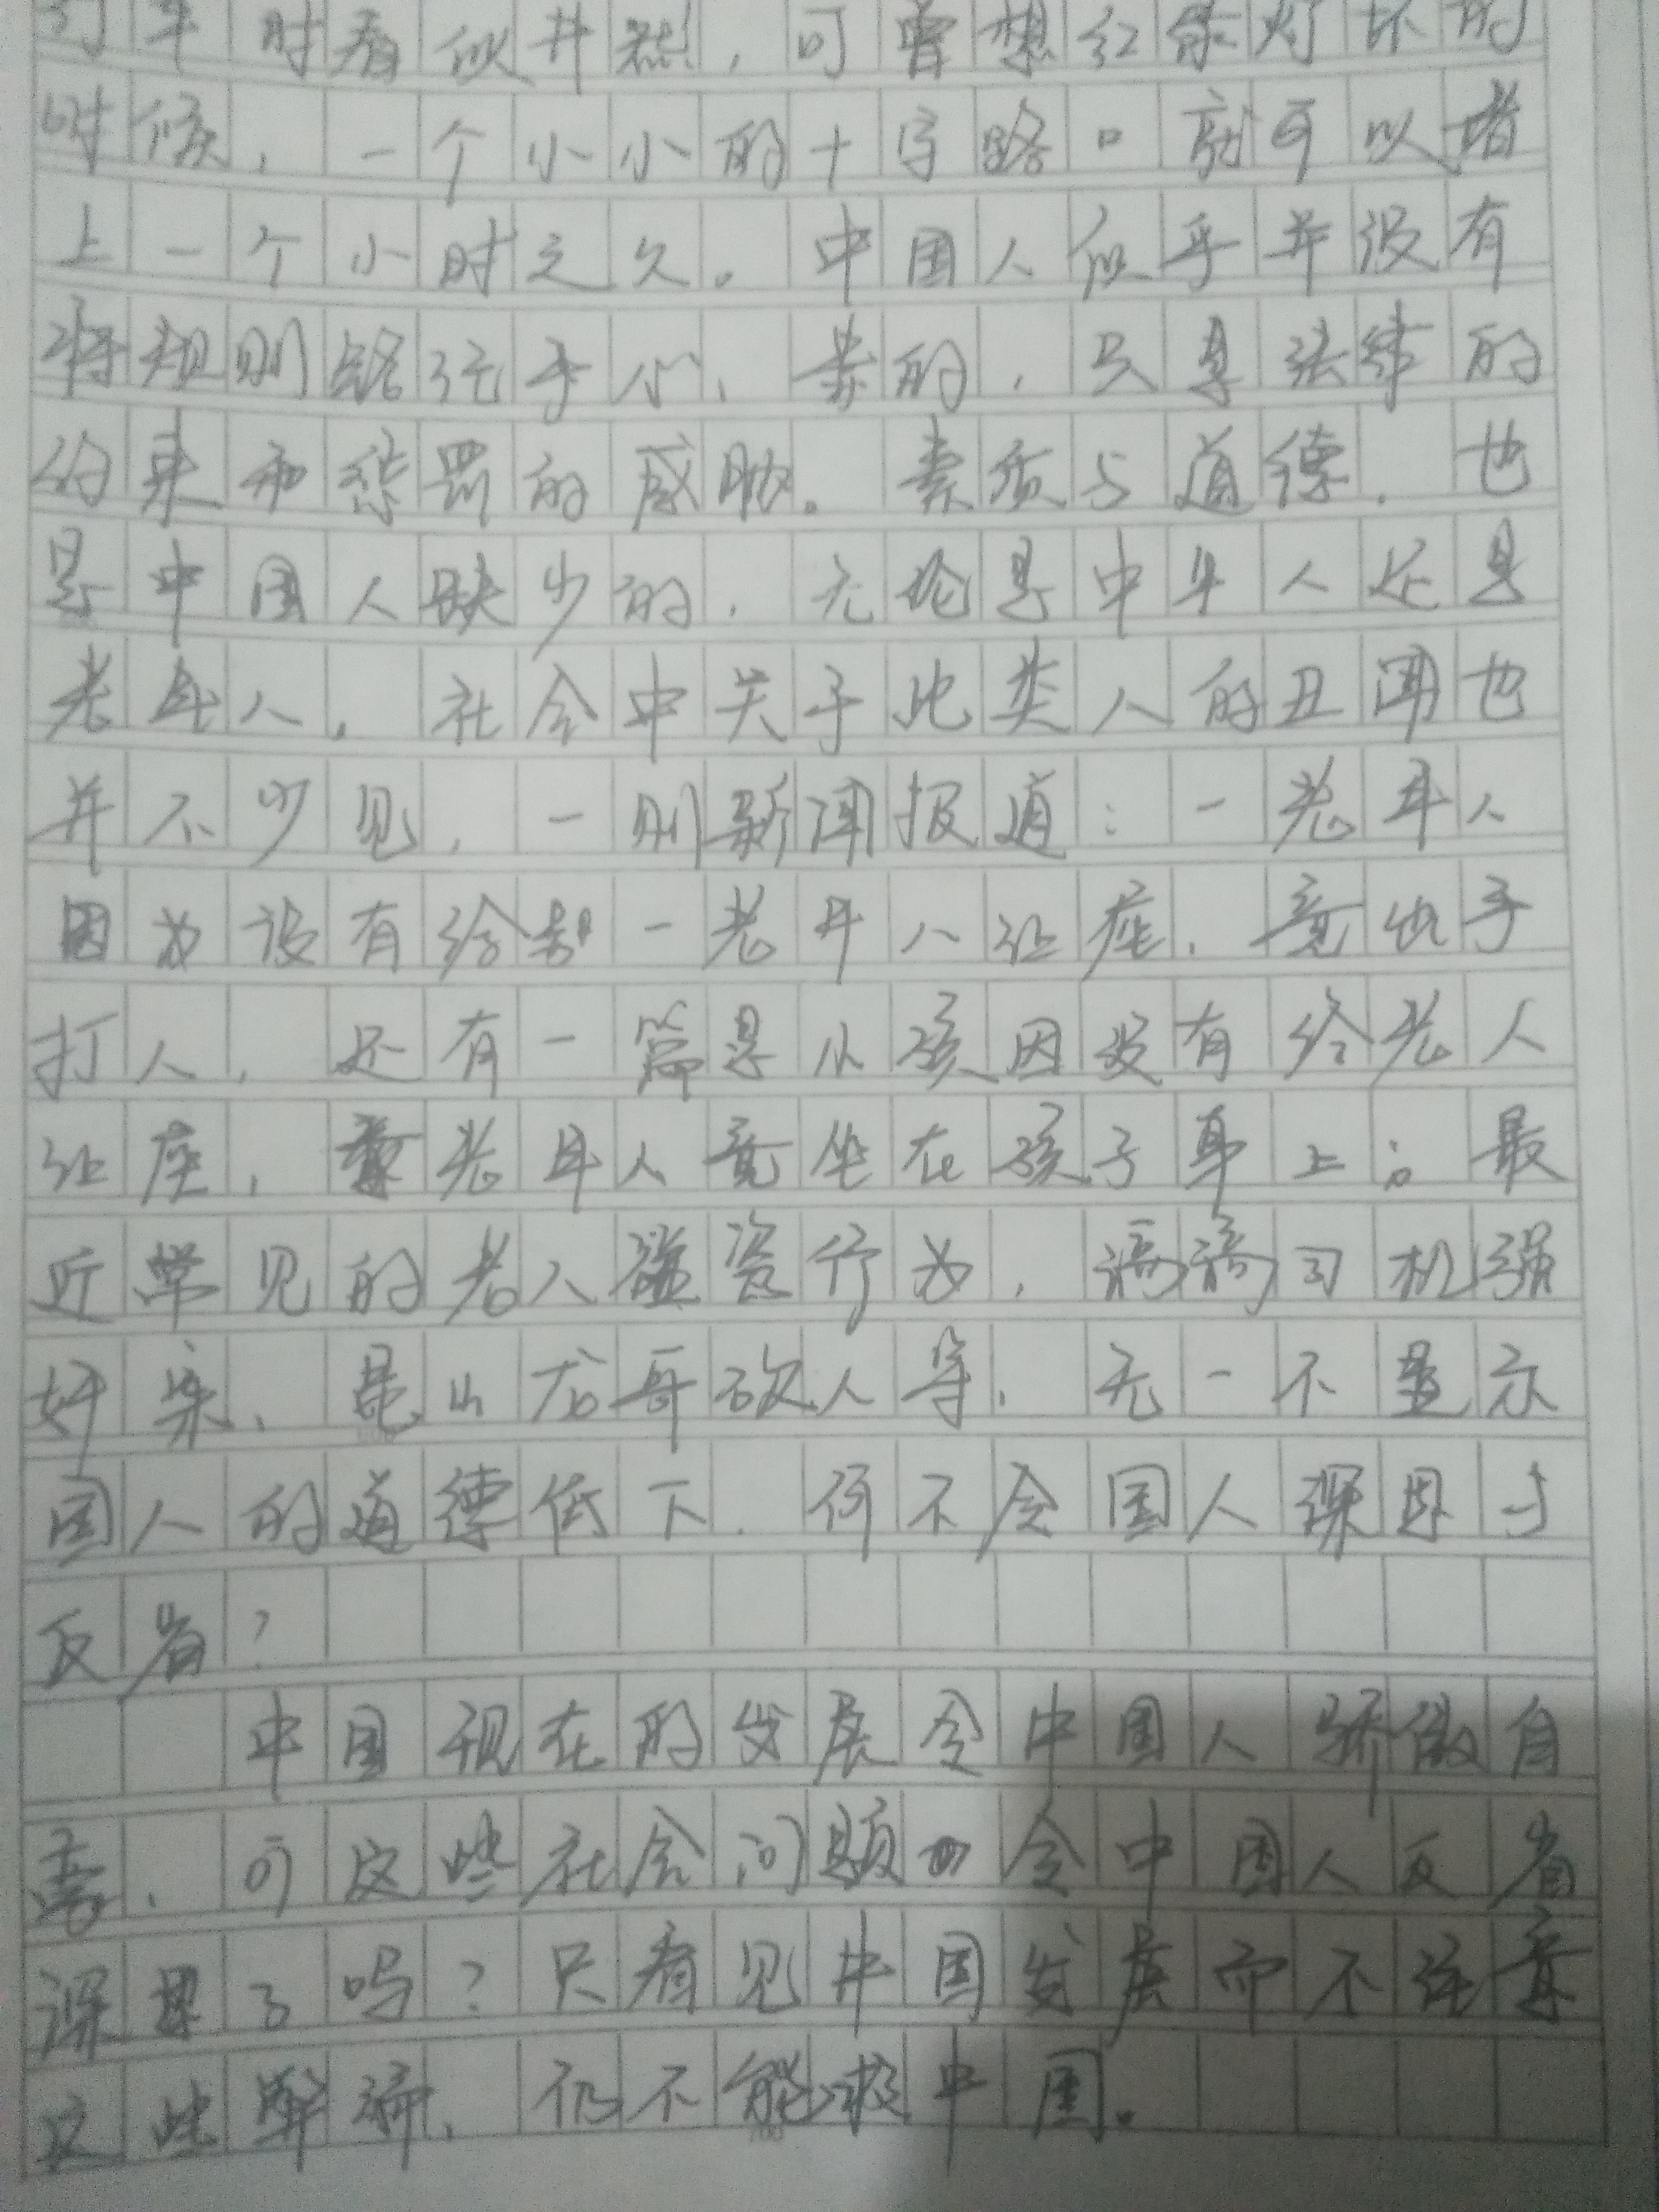 行车时看似井然,可曾想红绿灯坏的
时候,一个小小的十字路口就可以堵
上一个小时之久。中国人似乎并没有
将规则铭记于心,卖的,只是法律的
约束和惩罚的威胁。素质与道德,也
是中国人缺少的,无论是中年人还是
老年人。社会中关于此类人的丑闻也
并不少见,一则新闻报道:一老年人
因为没有给一老年人让座,竟出手
打人,还有一篇是小孩因没有给老人
让座,老年人竟坐在孩子身上;最
近常见的老人碰瓷行为,滴滴司机强
奸案,昆山龙哥砍人等,无一不显示
国人的道德低下,何不令国人深思与
反省?
中国现在的发展令中国人骄傲自
豪,可这些社会问题令中国人反省
深思了吗?只看见中国发展而不注意
这些弊病,仍不能救中国。